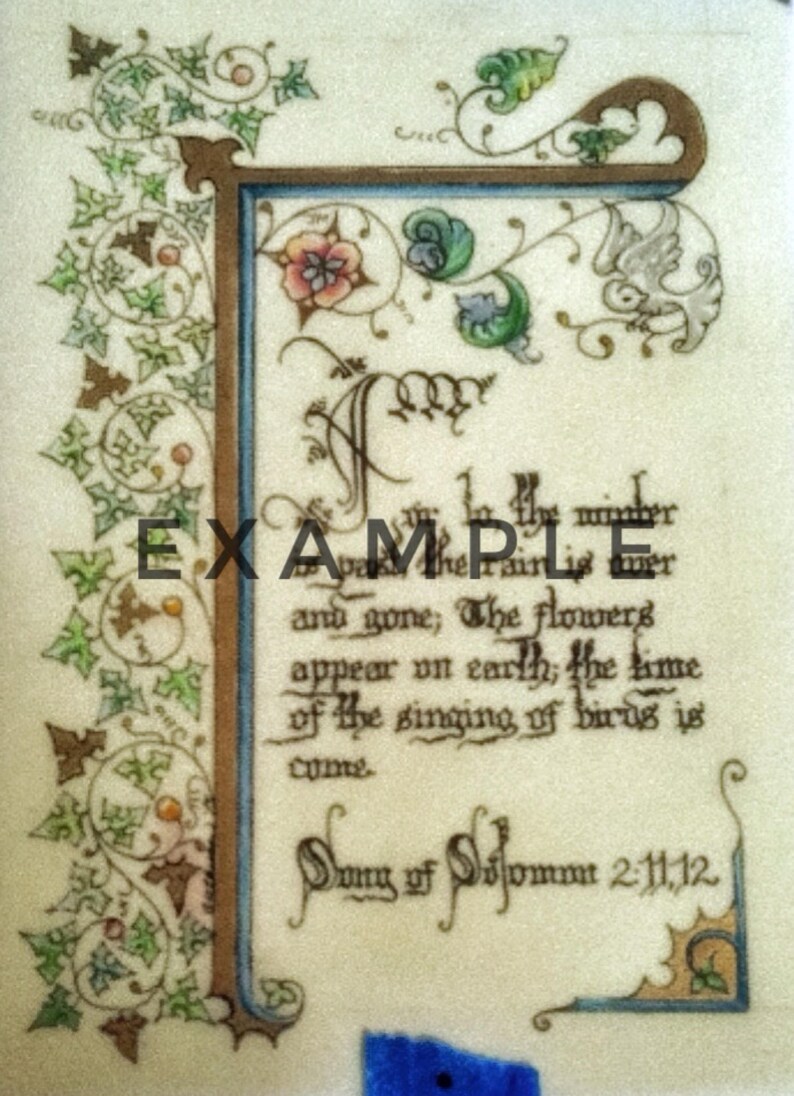 For lo the winter
is past, the rain is over
and gone; The flowers
appear on earth; the time
of the singing of birds is
come.
Song of Solomon 2:11,12
EXAMPLE